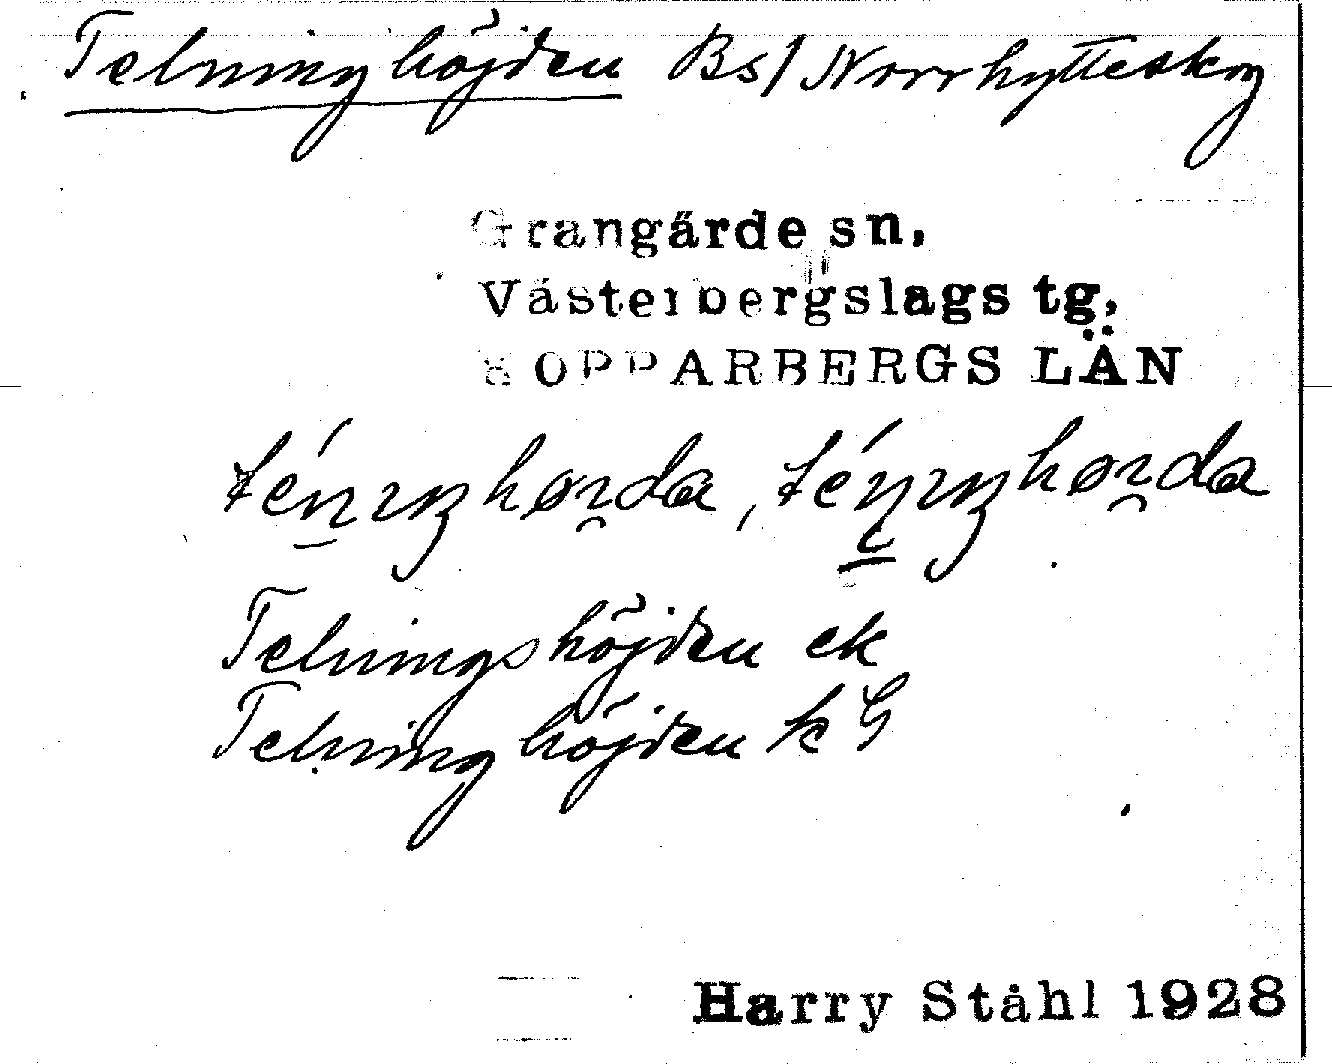 Telninghöjden Bs/Norrhytteskog
Grangärde sn.
Västerbergslags tg.
KOPPARBERGS LÄN
Telningshöjden ek
Telninghöjden k G
Harry Ståhl 1928